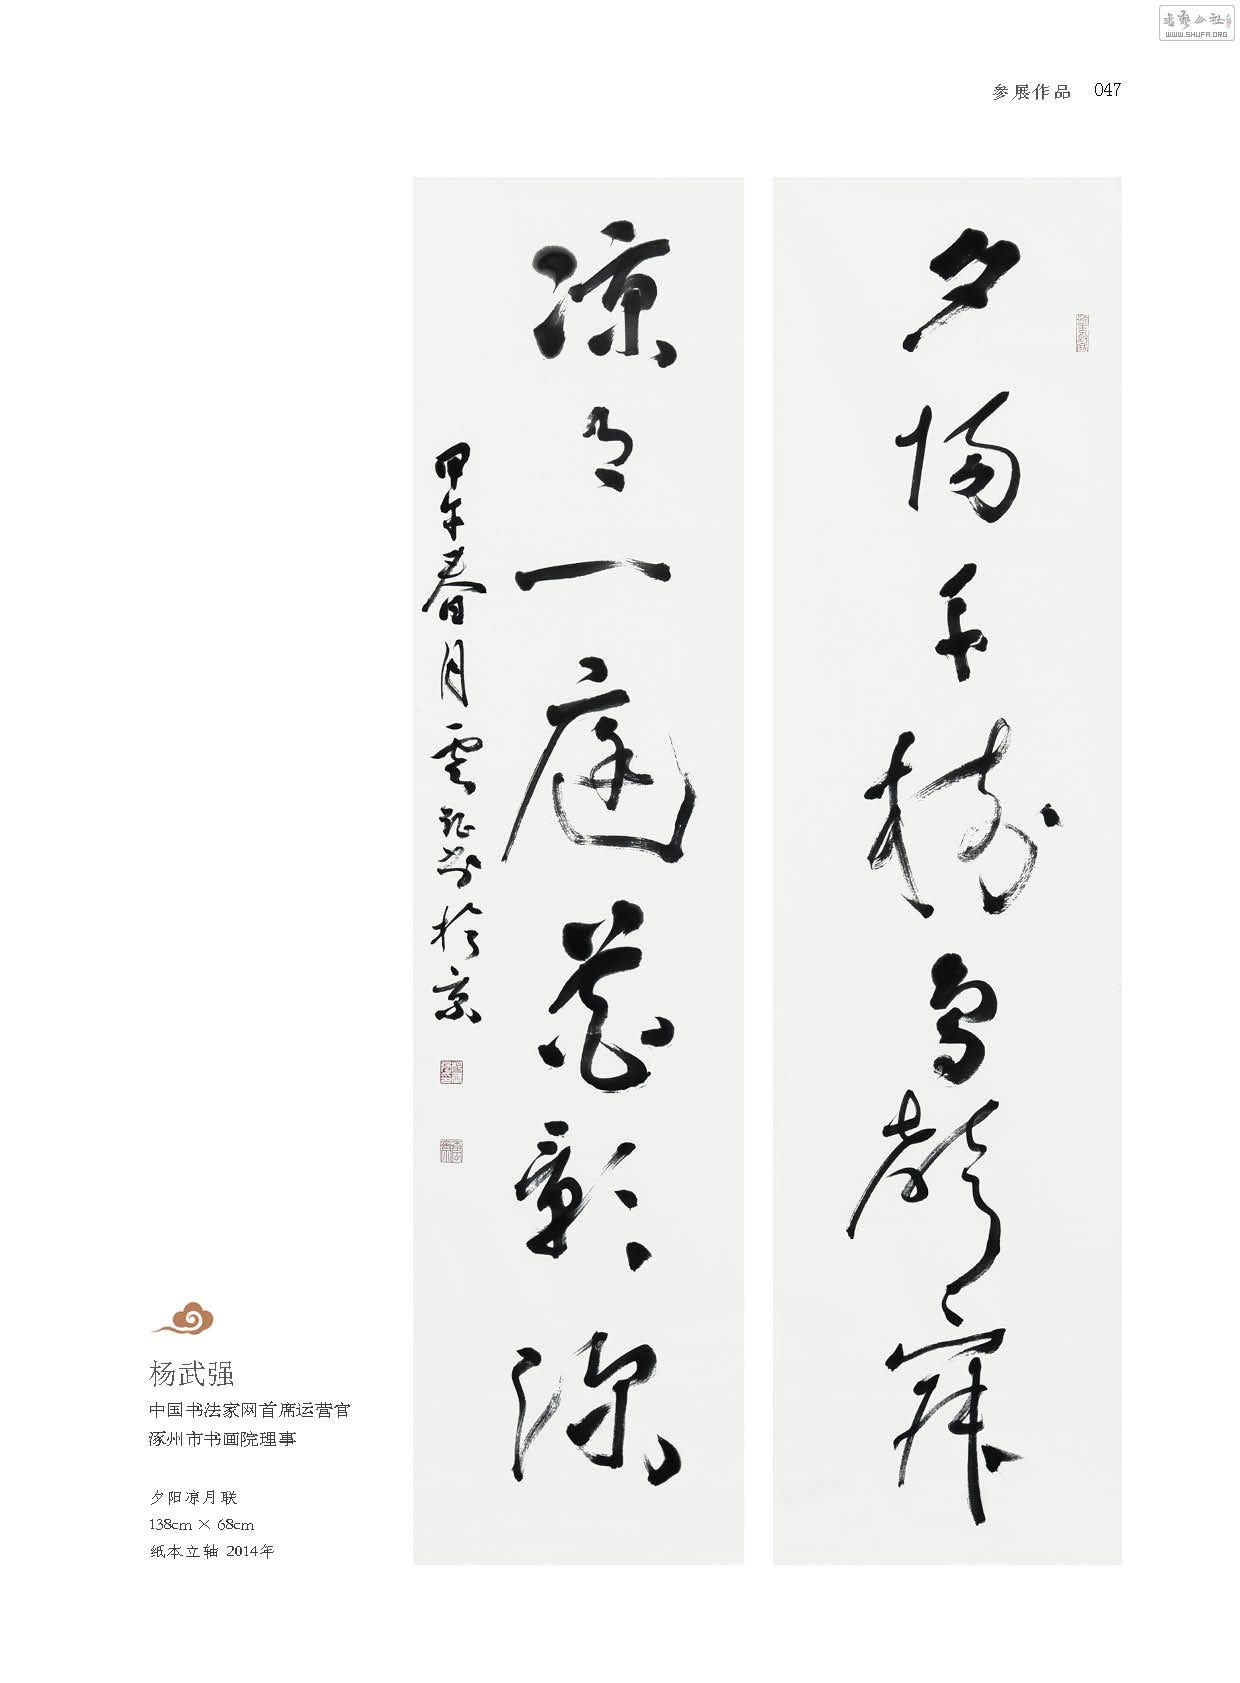 書藝公社
WWW.SHUFA.ORG
参展作品 047
夕陽千樹鳥聲寂
凉月一庭花影深
甲午春月雲書於京
杨武强
中国书法家网首席运营官
涿州市书画院理事
夕阳凉月联
138cm × 68cm
纸本立轴 2014年